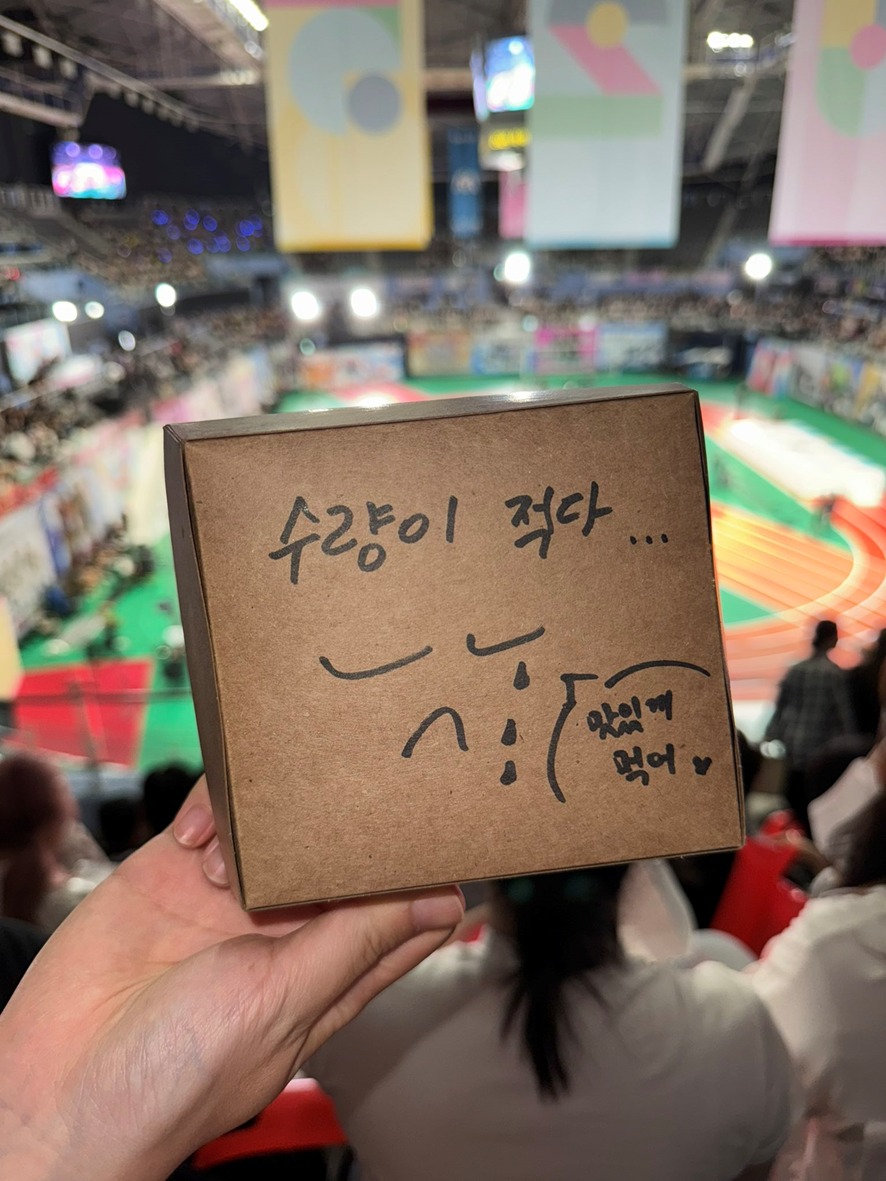 수량이 적다...
맛있게
먹어 ♥